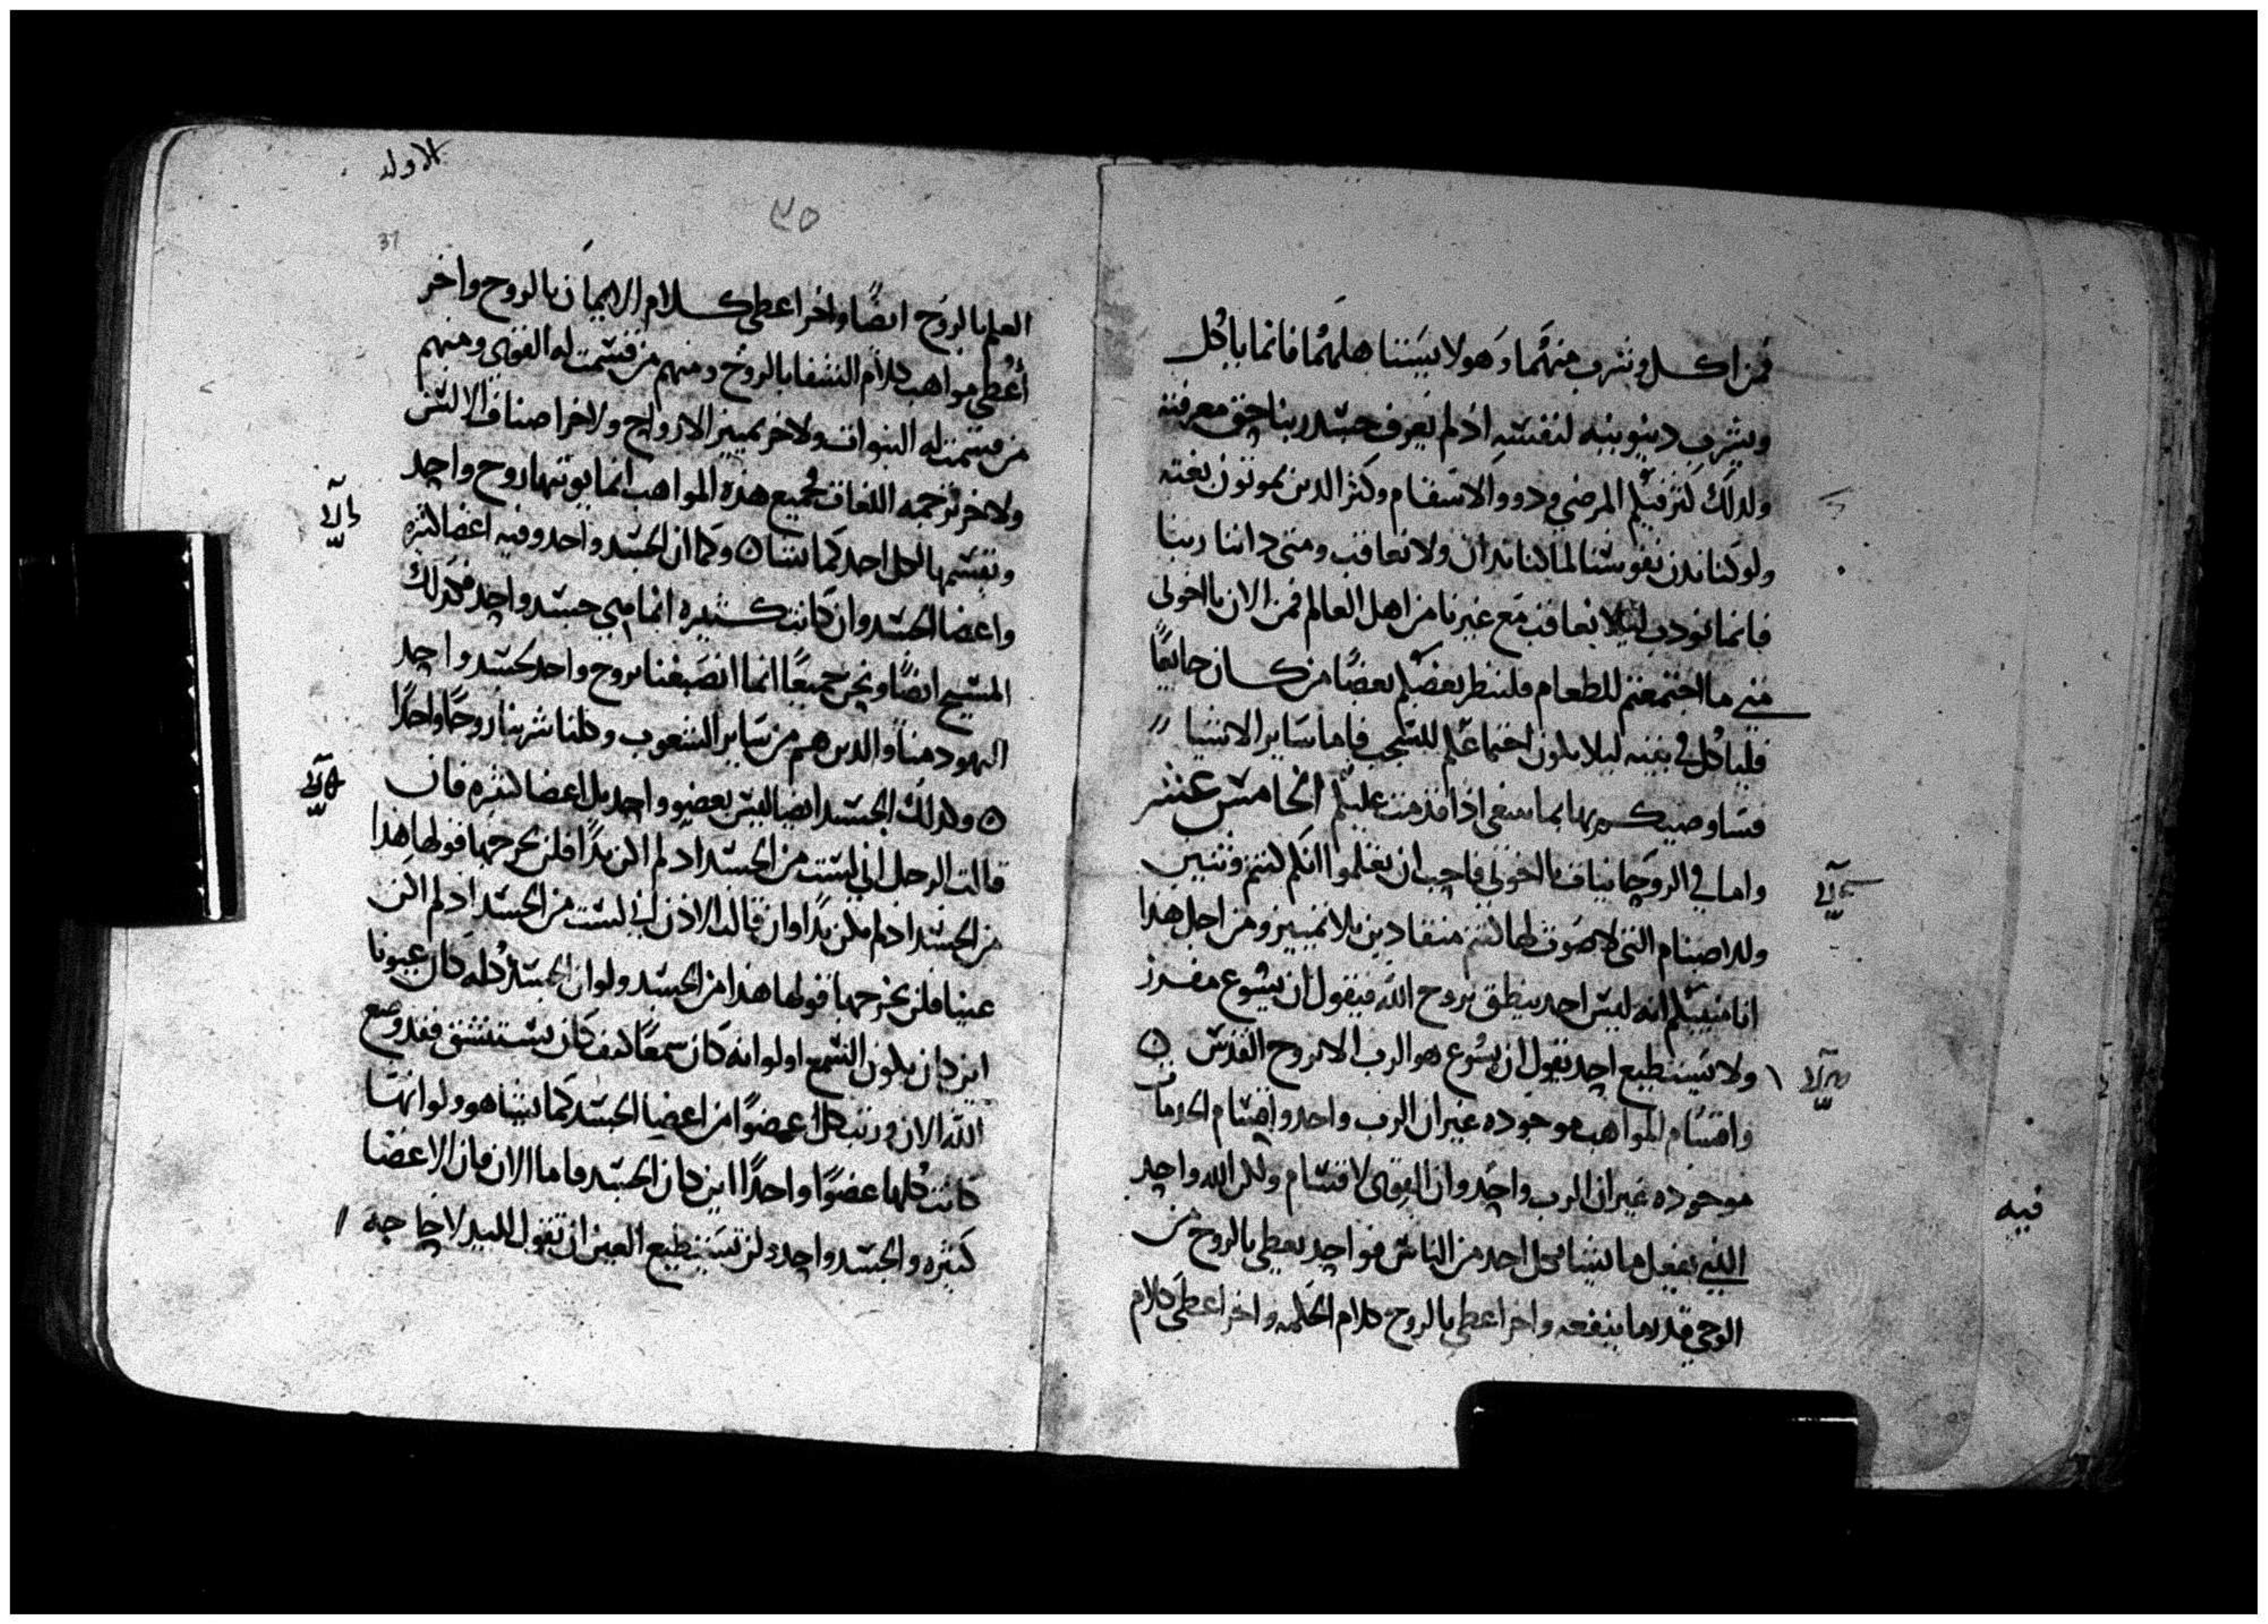 فمن اكل وشرب منهما وهو لا يستاهلهما فانما ياكل
ويشرب دينونه لنفسه اذ لم يعرف جسد ربنا حق معرفته
ولدلك كثر فيكم المرضى ودووا الاسقام وكثر الدين يموتون بغته
ولو كنا ندين نفوسنا لما كنا ندان ولا نعاقب ومتى داننا ربنا
فانما نودب ليلا نعاقب مع غيرنا من اهل العالم فمن الان يا اخوتي
متى ما اجتمعتم للطعام فلينظر بعضكم بعضًا من كان جايعًا
فلياكل في بيته ليلا يكون اجتماعكم للشجب فاما ساير الاشيا
فساوصيكم بها بما ينبغي اذا قدمت عليكم الخامس عشر
واما في الروحانيات يا اخوتي فاحب ان تعلموا انكم كنتم وثنيين
ولداصنام التي لا صوت لها كنتم منقادين بلا تمييز ومن اجل هدا
انا منبيكم انه ليس احد ينطق بروح الله فيقول ان يسوع مفرز
ولا يستطيع احد يقول ان يسوع هو الرب الا بروح القدس
واقسام المواهب موجوده غير ان الرب واحد واقسام الخدمات
موجوده غير ان الرب واحد وان القوى لاقسام ولكن الله واحد
الدي يفعل ما يشا بكل احد من الناس فواحد يعطى بالروح من
الوحي قدر ما ينفعه واخر اعطي بالروح كلام الحكمه واخر اعطي كلام
فيه
الاوله
٣٥
31
العلم بالروح ايضًا واخر اعطي كلام الايمان بالروح واخر
أعطي مواهب كلام الشفا بالروح ومنهم من قسمت له القوى ومنهم
من قسمت له النبوات ولاخر تمييز الارواح ولاخر اصناف الالسن
ولاخر ترجمه اللغات فجميع هده المواهب انما يوتيها روح واحد
ويقسمها لكل احد كما يشا وكما ان الجسد واحد وفيه اعضا كثيره
واعضا الجسد وان كانت كثيره انما هي جسد واحد فكدلك
المسيح ايضًا ونحن جميعًا انما انصبغنا بروح واحد لجسد واحد
اليهود منا والدين هم من ساير الشعوب وكلنا شربنا روحًا واحدًا
وكدلك الجسد ايضا ليس بعضو واحد بل اعضا كثيره فان
قالت الرجل اني لست من الجسد اد لم اكن يدًا فلن يخرجها قولها هدا
من الجسد اد لم تكن يدًا وان قالت الادن اني لست من الجسد اد لم اكن
عينا فلن يخرجها قولها هدا من الجسد ولو ان الجسد كله كان عيونا
اين كان يكون السمع او لو انه كان سمعًا كيف كان يستنشق فقد وضع
الله الان ورتب كل عضوًا من اعضا الجسد كما يشا هو ولو انها
كانت كلها عضوًا واحدًا اين كان الجسد فاما الان فان الاعضا
كثيره والجسد واحد ولن تستطيع العين ان تقول لليد لا حاجه